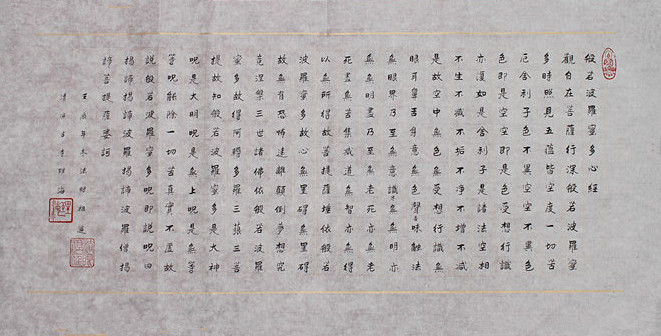 般若波羅蜜多心經
觀自在菩薩行深般若波羅蜜
多時照見五蘊皆空度一切苦
厄舍利子色不異空空不異色
色即是空空即是色受想行識
亦復如是舍利子是諸法空相
不生不滅不垢不淨不增不減
是故空中無色無受想行識無
眼耳鼻舌身意無色聲香味觸法
無眼界乃至無意識界無無明亦
無無明盡乃至無老死亦無老
死盡無苦集滅道無智亦無得
以無所得故菩提薩埵依般若
波羅蜜多故心無罣礙無罣礙
故無有恐怖遠離顛倒夢想究
竟涅槃三世諸佛依般若波羅
蜜多故得阿耨多羅三藐三菩
提故知般若波羅蜜多是大神
呪是大明呪是無上呪是無等
等呪能除一切苦真實不虛故
說般若波羅蜜多呪即說呪曰
揭諦揭諦波羅揭諦波羅僧揭
諦菩提薩婆訶